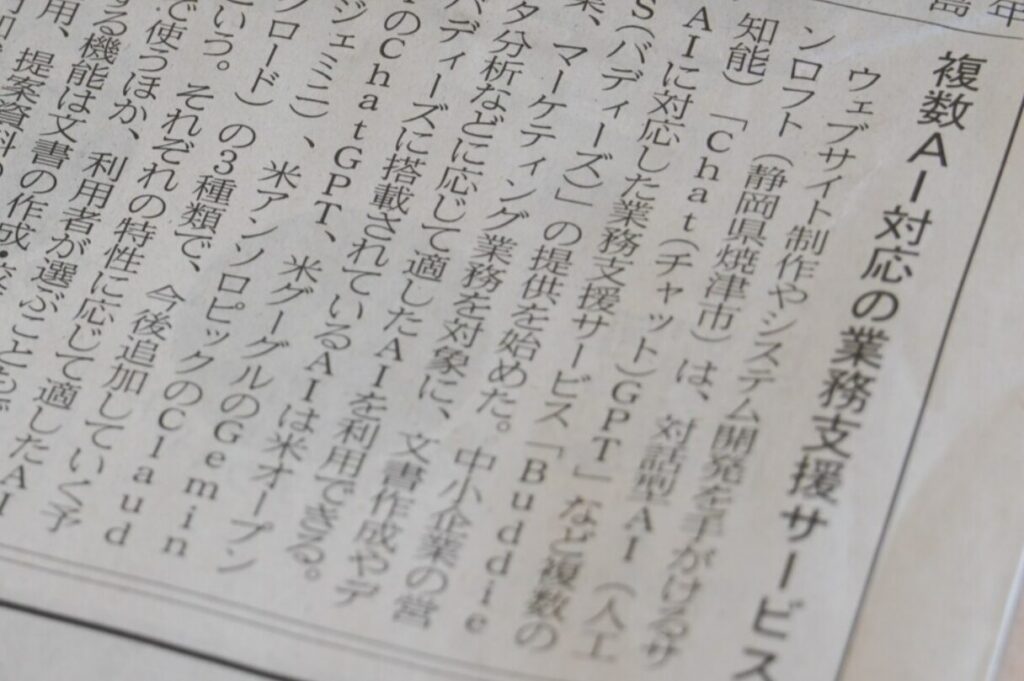 複数AI対応の業務支援サービス
ウェブサイト制作やシステム開発を手がけるサ
ンロフト(静岡県焼津市)は、対話型AI(人工
知能)「Chat(チャット)GPT」など複数の
AIに対応した業務支援サービス「Buddie
S(バディーズ)」の提供を始めた。中小企業の営
業、マーケティング業務を対象に、文書作成やデ
タ分析などに応じて適したAIを利用できる。
バディーズに搭載されているAIは米オープン
のChatGPT、米グーグルのGemin
ジェミニ)、米アンソロピックのClaud
クロード)の3種類で、今後追加していく予
という。それぞれの特性に応じて適したAI
で使うほか、利用者が選ぶことも
する機能は文書の作成・
用、提案資料の
年
島